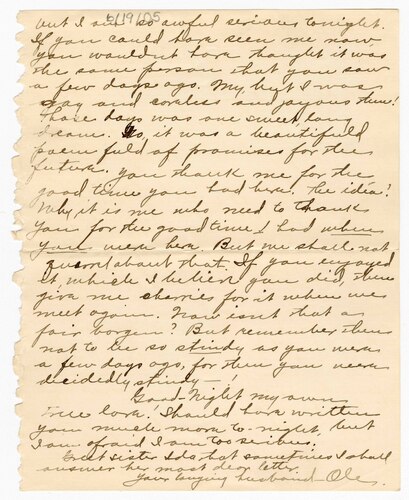 6/19/05
but I am so awful serious to-night.
If you could have seen me now
you wouldn't have thought it was
the same person that you saw
a few days ago. My, but I was
gay and careless and joyous then!
Those days was one sweet long
dream. No, it was a beautifull
poem full of promises for the
future. You thank me for the
good time you had here. The idea!
Why it is me who need to thank
you for the good time I had when
you were here. But we shall not
quarrel about that. If you enjoyed
it, which I believe you did, then
give me cherries for it when we
meet again. Now isn't that a
fair bargen? But remember then
not to be so stindy as you were
a few days ago, for then you were
decidedly stindy —
Good-Night my own
true love. Should have written
you much more to-night, but
I am afraid I am too
Greet sister Ida that sometimes I shall
answer her most dear letter.
Your longing husband – Ole.